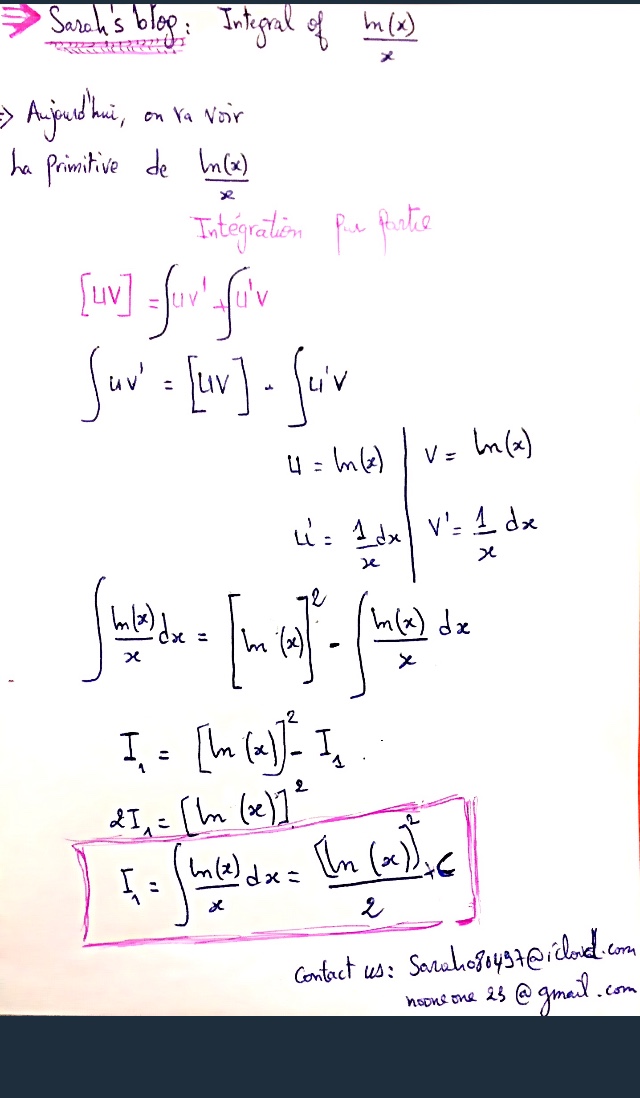 ⇒ Sarah's blog: Integral of ln(x)/x
=> Aujourd'hui, on va voir
La primitive de ln(x)/x
Intégration par partie
[uv] = ∫uv' + ∫u'v
∫uv' = [uv] - ∫u'v
u = ln(x) | v = ln(x)
u' = 1/x dx | v' = 1/x dx
∫ ln(x)/x dx = [ln (x)]² - ∫ ln(x)/x dx
I₁ = [ln (x)]² - I₁ .
2I₁ = [ln (x)]²
I₁ = ∫ ln(x)/x dx = [ln (x)]²/2 + C
Contact us: Sarah080497@icloud.com
noone one 23 @ gmail.com